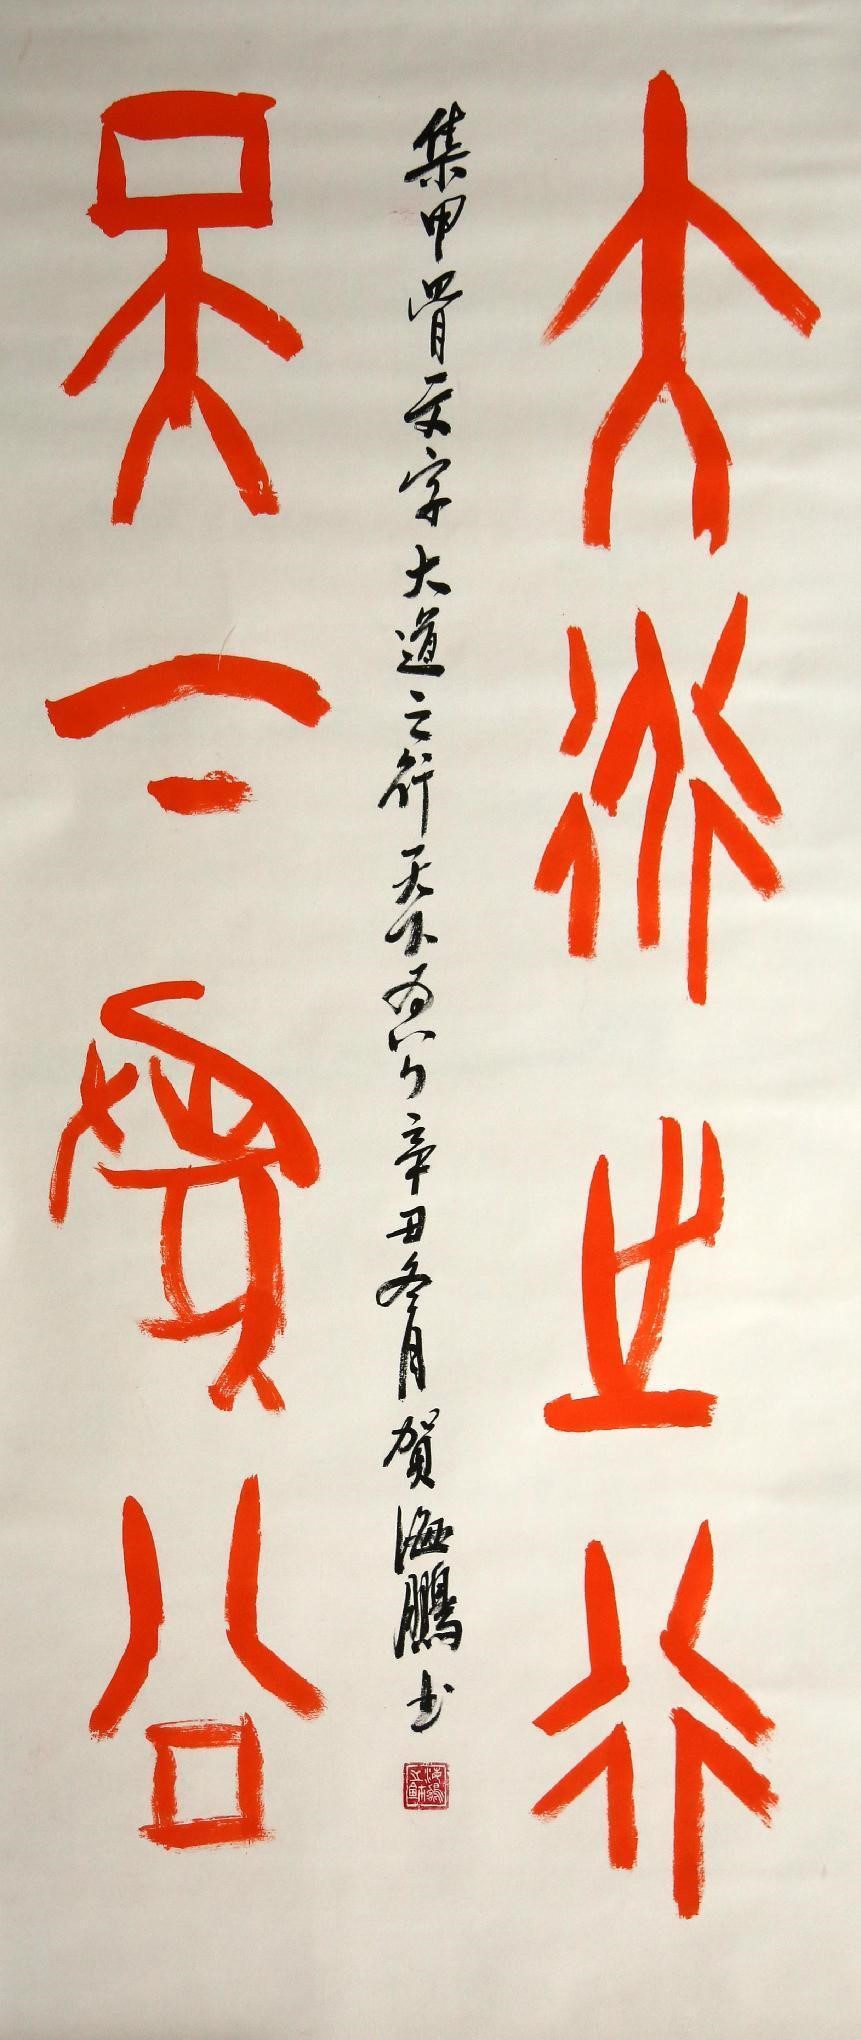 大道之行
天下為公
集甲骨文字大道之行天下為公辛丑冬月賀海鵬书